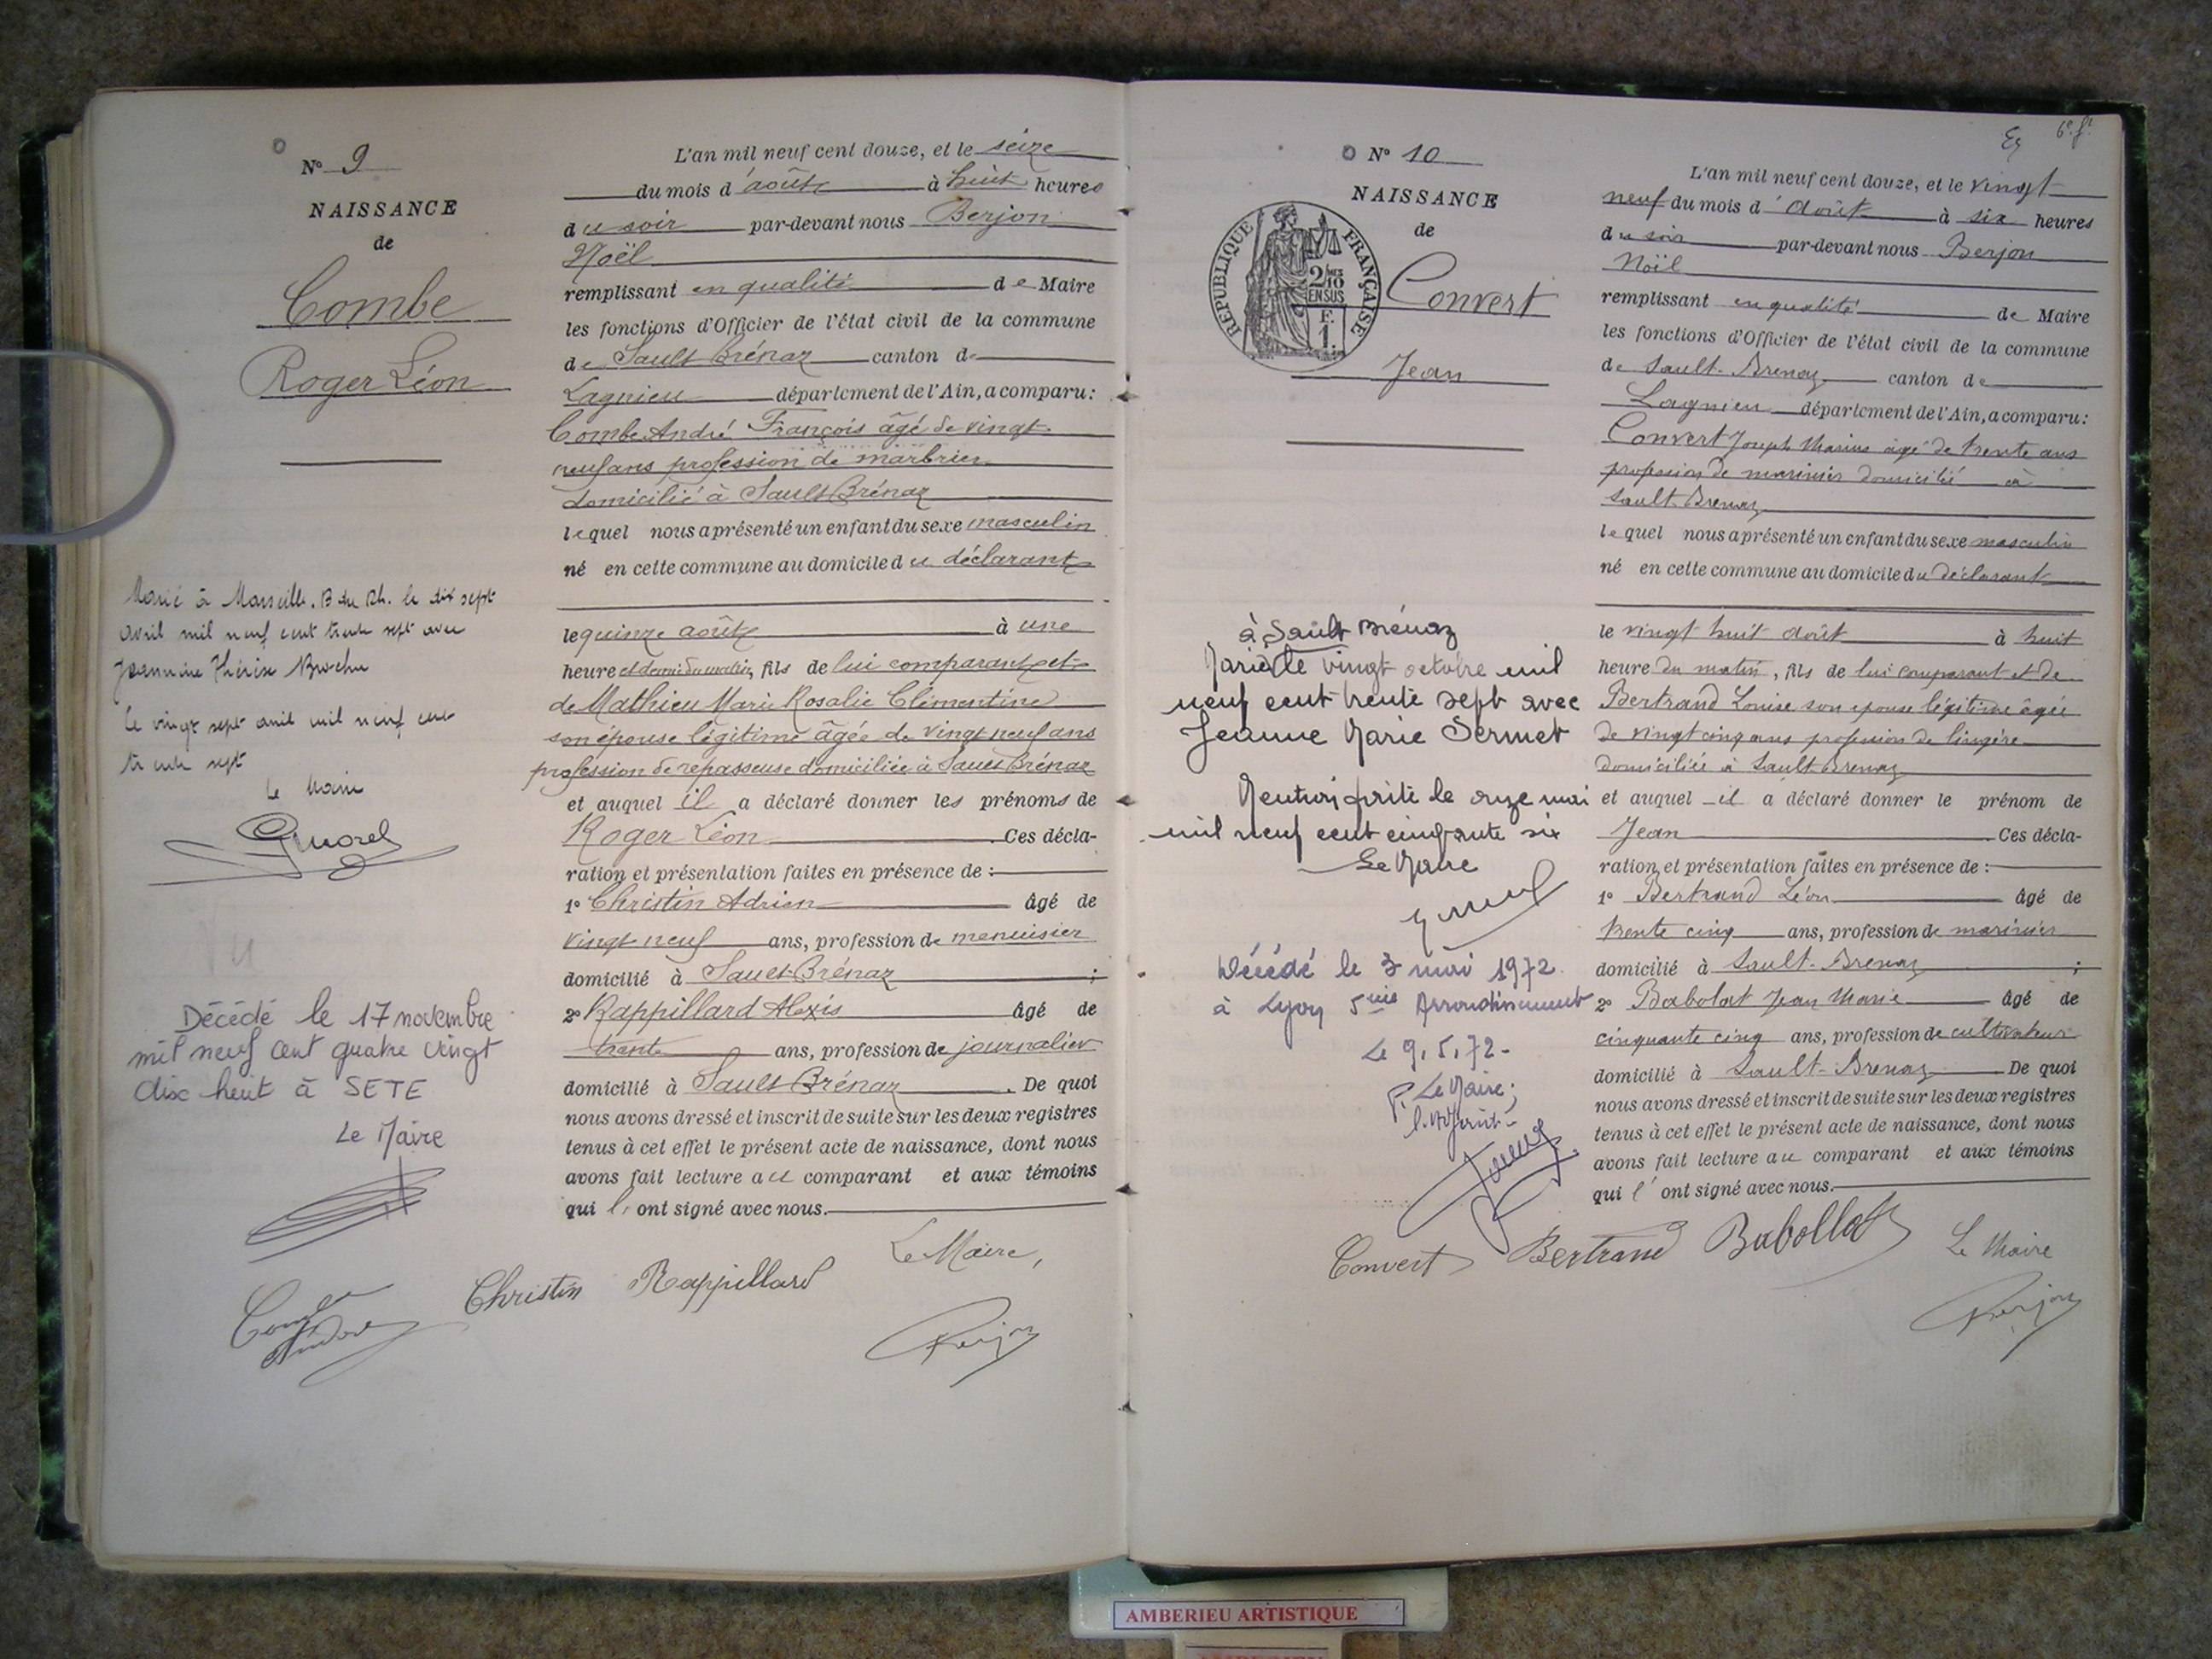 N° 9
NAISSANCE
de
Combe
Roger Léon
Marié à Marseille. B du Rh. le dix sept
avril mil neuf cent trente sept avec
Jeannine Thérèse
le vingt sept avril mil neuf cent
trente sept
Le Maire
Décédé le 17 novembre
mil neuf cent quatre vingt
dix huit à SETE
Le Maire
L'an mil neuf cent douze, et le seize
du mois d'août à huit heures
du soir par-devant nous Berjon
Noël
remplissant en qualité de Maire
les fonctions d'Officier de l'état civil de la commune
de Sault Brénaz canton de
Lagnieu département de l'Ain, a comparu:
Combe André François âgé de vingt
neuf ans profession de marbrier
domicilié à Sault Brénaz
lequel nous a présenté un enfant du sexe masculin
né en cette commune au domicile du déclarant
le quinze août à une
heure et demi du matin, fils de lui comparant et
de Mathieu Marie Rosalie Clémentine
son épouse légitime âgée de vingt neuf ans
profession de repasseuse domiciliée à Sault Brénaz
et auquel il a déclaré donner les prénoms de
Roger Léon. Ces décla-
ration et présentation faites en présence de :
1° Christin Adrien âgé de
vingt neuf ans, profession de menuisier
domicilié à Sault-Brénaz ;
2° Rappillard Alexis âgé de
trente ans, profession de journalier
domicilié à Sault Brénaz. De quoi
nous avons dressé et inscrit de suite sur les deux registres
tenus à cet effet le présent acte de naissance, dont nous
avons fait lecture au comparant et aux témoins
qui l'ont signé avec nous.
Le Maire,
Combe André Christin Rappillard
Berjon
6e. ft
N° 10
NAISSANCE
de
RÉPUBLIQUE FRANÇAISE
2/10
EN SUS
F.
1.
Convert
Jean
à Sault Brénaz
Marié le vingt octobre mil
neuf cent trente sept avec
Jeanne Marie Sermet
Mention faite le onze mai
mil neuf cent cinquante six
Le Maire
Décédé le 3 mai 1972
à Lyon 5ème Arrondissement
Le 9.5.72-
P. Le Maire;
l'Adjoint-
L'an mil neuf cent douze, et le vingt
neuf du mois d'Août à six heures
du soir par-devant nous Berjon
Noël
remplissant en qualité de Maire
les fonctions d'Officier de l'état civil de la commune
de Sault-Brenaz canton de
Lagnieu département de l'Ain, a comparu:
Convert Joseph Marius âgé de trente ans
profession de marinier domicilié à
Sault-Brenaz
lequel nous a présenté un enfant du sexe masculin
né en cette commune au domicile du déclarant
le vingt huit août à huit
heure du matin, fils de lui comparant et de
Bertrand Louise son épouse légitime âgée
de vingt cinq ans profession de lingère
domiciliée à Sault-Brenaz
et auquel il a déclaré donner le prénom de
Jean. Ces décla-
ration et présentation faites en présence de :
1° Bertrand Léon âgé de
trente cinq ans, profession de marinier
domicilié à Sault-Brenaz ;
2° Babolat Jean Marie âgé de
cinquante cinq ans, profession de cultivateur
domicilié à Sault-Brenaz De quoi
nous avons dressé et inscrit de suite sur les deux registres
tenus à cet effet le présent acte de naissance, dont nous
avons fait lecture au comparant et aux témoins
qui l'ont signé avec nous.
Convert Bertrand Babollat Le Maire
Berjon
AMBERIEU ARTISTIQUE